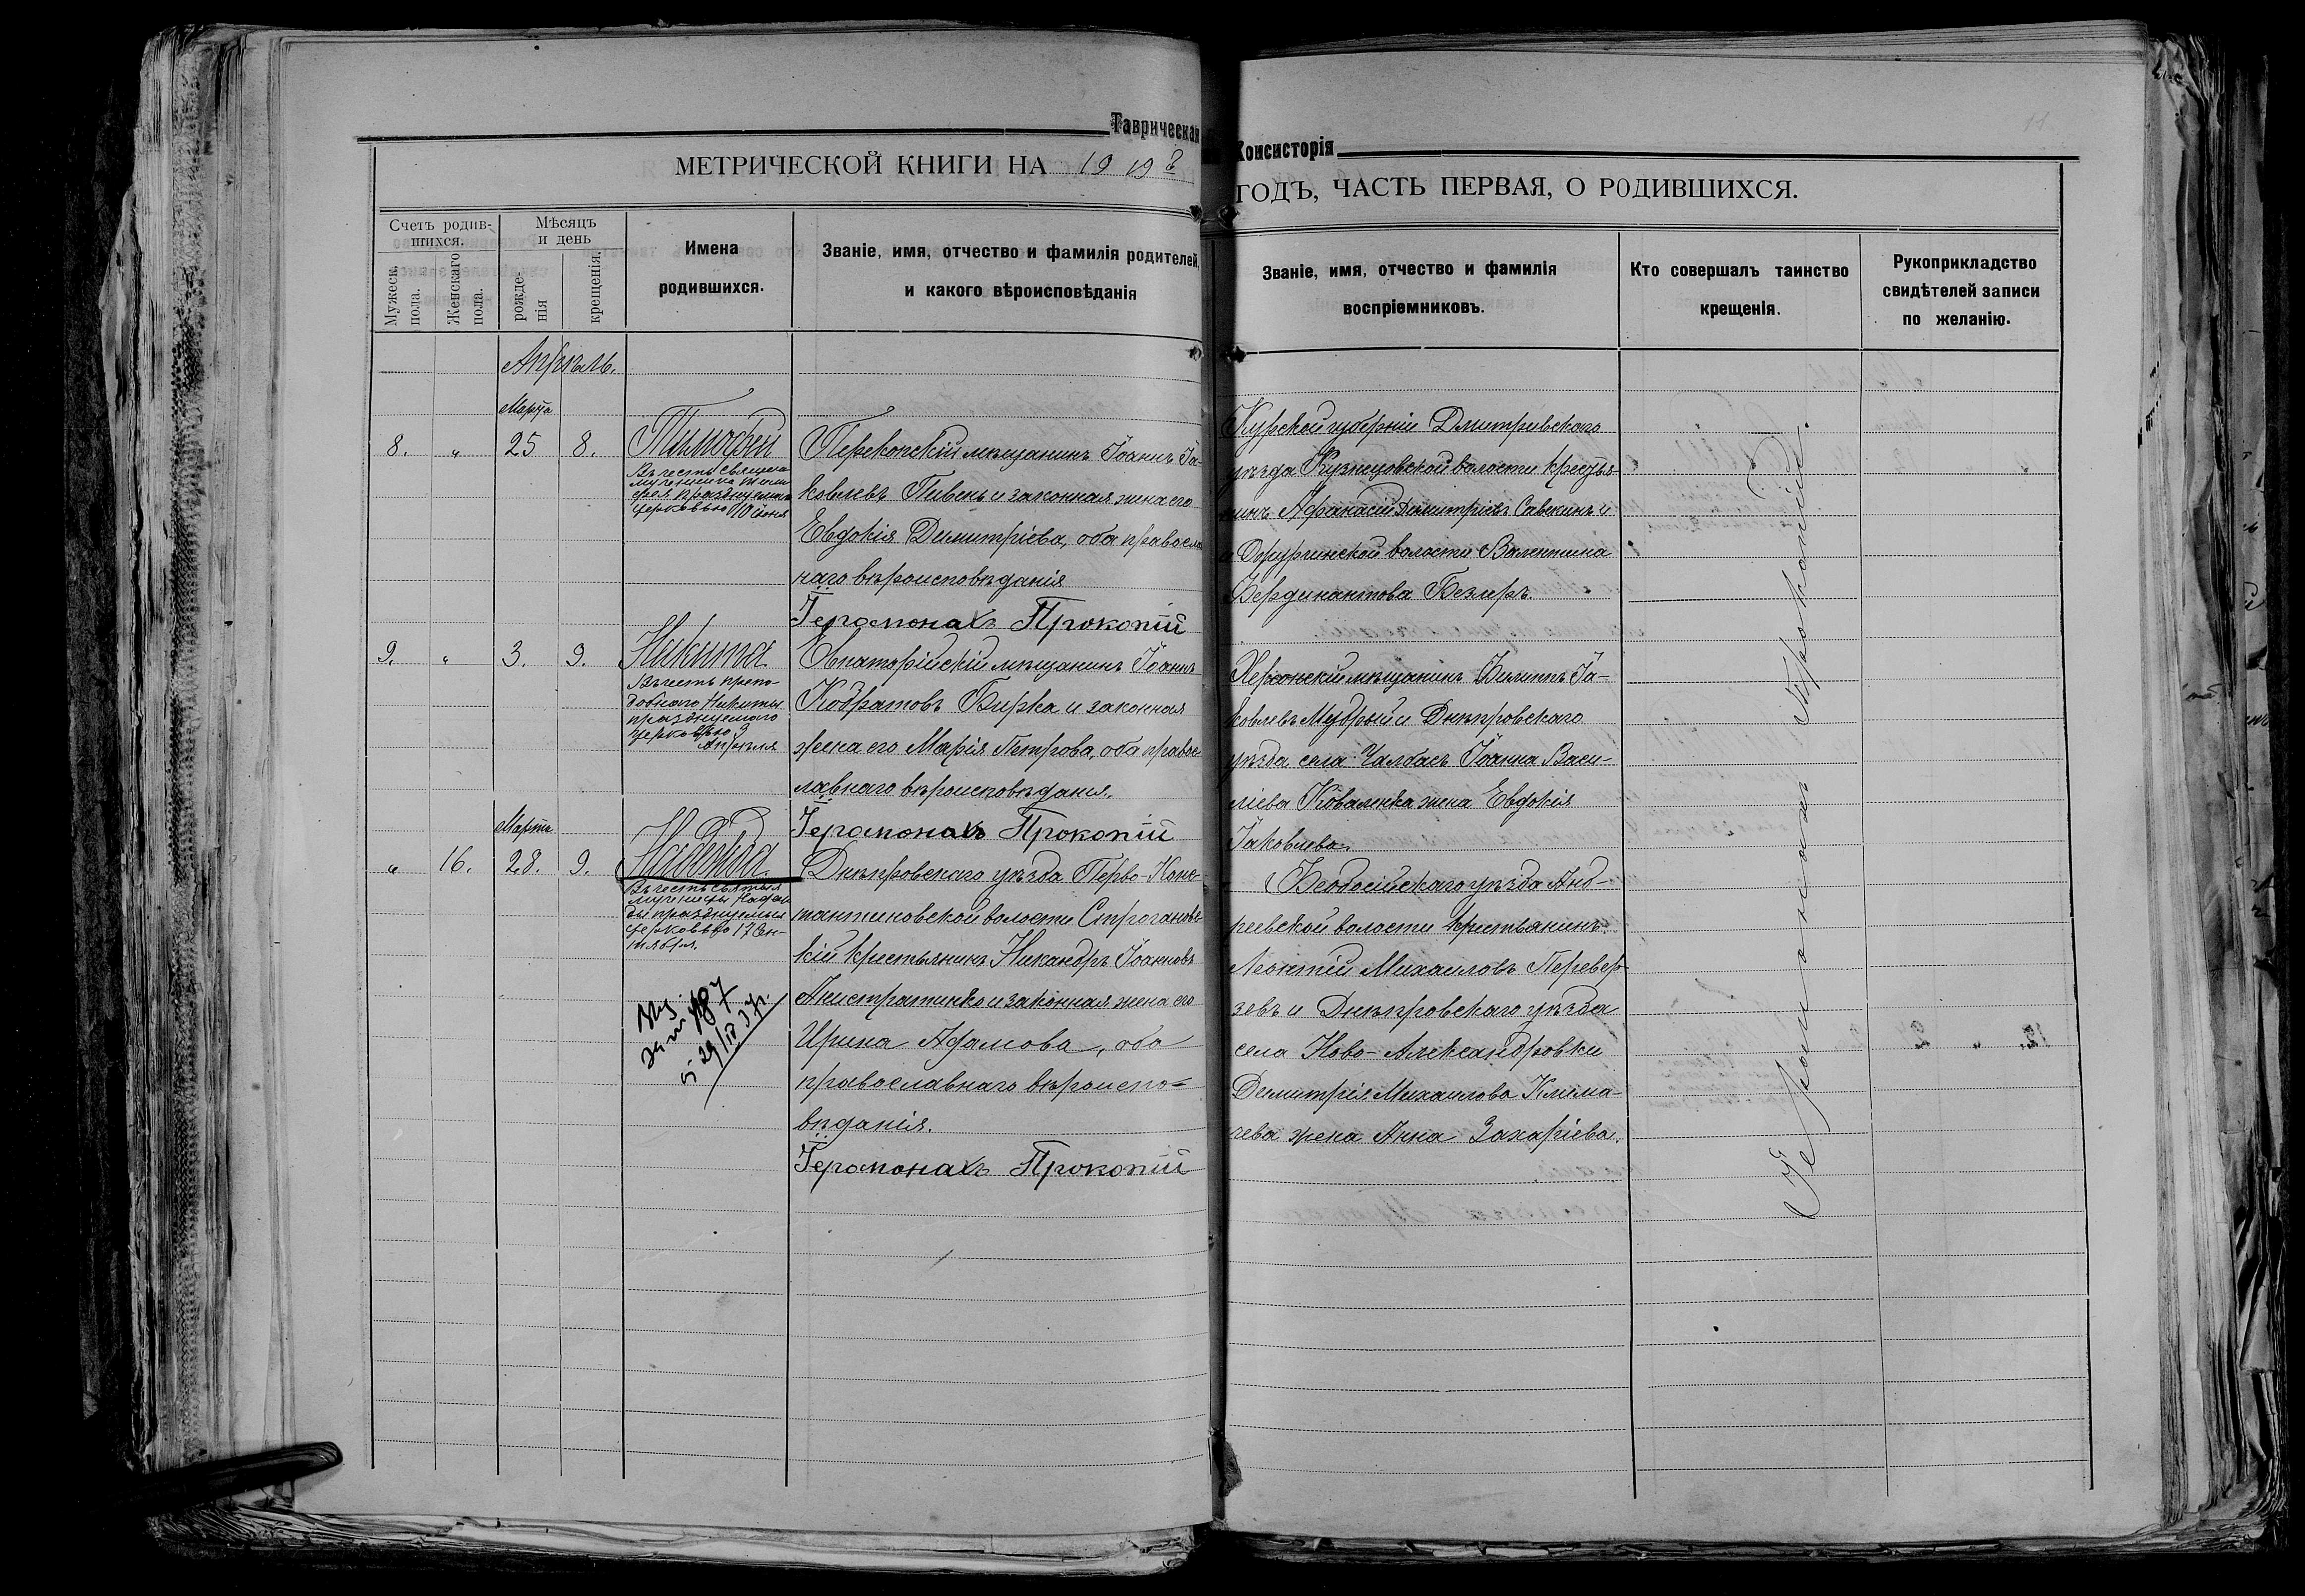 Таврическая Консисторія
МЕТРИЧЕСКОЙ КНИГИ НА 1919 ГОДЪ, ЧАСТЬ ПЕРВАЯ, О РОДИВШИХСЯ.
Счетъ родив-
шихся.
Мужеск.
пола.
Женскаго
пола.
Мѣсяцъ
и день
рожде-
нія
крещенія.
Имена
родившихся.
Званіе, имя, отчество и фамилія родителей,
и какого вѣроисповѣданія
Званіе, имя, отчество и фамилія
воспріемниковъ.
Кто совершалъ таинство
крещенія.
Рукоприкладство
свидѣтелей записи
по желанію.
Апрѣль.
Марта
8. „ 25 8.
Тимофей
Въ честь священо
мученика Тимо
фея празднуемаго
церковью 10 іюня
Перекопскій мѣщанинъ Іоаннъ Іа-
ковлевъ Пивень и законная жена его
Евдокія Димитріева, оба православ
наго вѣроисповѣданія
Іеромонахъ Прокопій
Курской губерніи Дмитріевскаго
уѣзда Кузнецовской волости крестья
нинъ Афанасій Димитріевъ Савскинъ и
Валентина
Фердинантова Безиръ.
9. „ 3. 9.
Никита
Въ честь препо-
добнаго Никиты
празднуемаго
церковью 3
Апрѣля
Евпаторійскій мѣщанинъ Іоаннъ
Кодратовъ Бирка и законная
жена его Марія Петрова, оба правос
лавнаго вѣроисповѣданія.
Іеромонахъ Прокопій
Херсонскій мѣщанинъ Филиппъ Іа-
ковлевъ Мудрый и Днѣпровскаго
уѣзда села Чалбасъ Іоанна Васи-
ліева Коваленка жена Евдокія
Іаковлева.
Марта
„ 16. 28. 9.
Надежда.
Въ честь святыя
мученицы Надеж
ды празднуемыя
церковью 17 Сен-
тября.
187
29/IV 37г.
Днѣпровскаго уѣзда Перво-Конс
тантиновской волости Строгановс
кій крестьянинъ Никандръ Іоанновъ
Анистратенко и законная жена его
Ирина Адамова, оба
православнаго вѣроиспо-
вѣданія.
Іеромонахъ Прокопій
Феодосійскаго уѣзда Анд-
реевской волости крестьянинъ
Леонтій Михаиловъ Перевер-
зевъ и Днѣпровскаго уѣзда
села Ново-Александровки
Димитрія Михаилова Клима-
чева жена Анна Захаріева.
Іеромонахъ Прокопій.